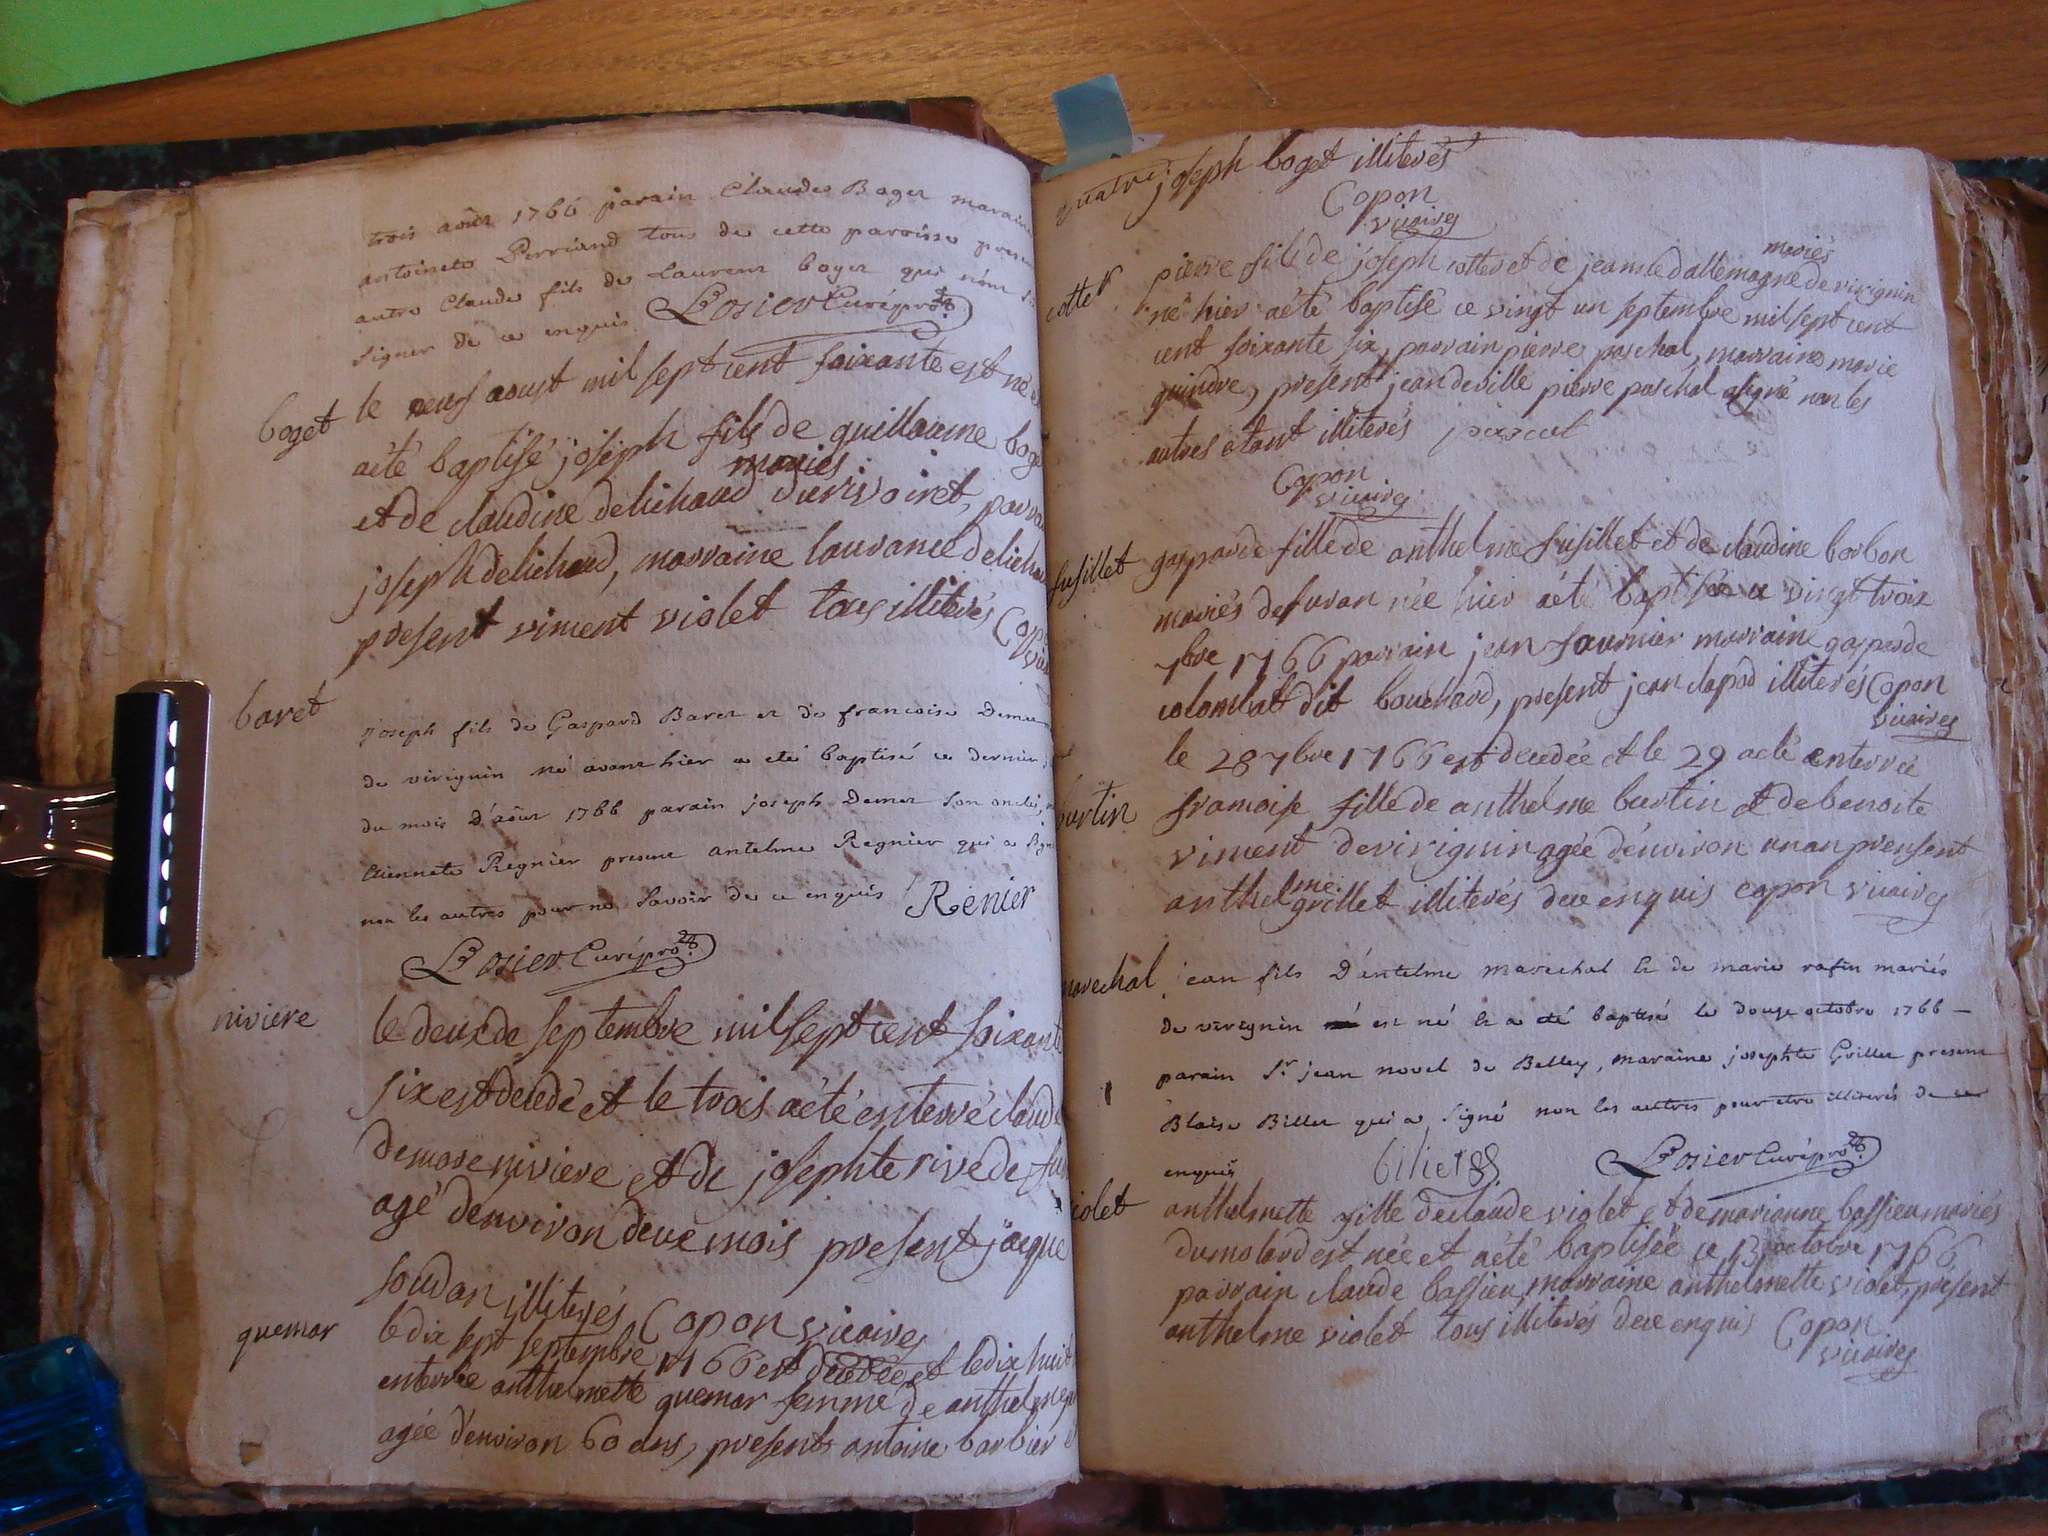 trois août 1766 parain Claude Boget maraine
antoinete Perriand tous de cette paroisse present
autre Claude fils de Laurent boget qui n'ont
signer de ce enquis Losier Curé pro.
boget
le neuf aoust mil sept cent soixante est né
aété baptisé joseph fils de guillaume boget
et de claudine delichaud mariés
joseph delichaud, marraine laurance delichaud
present vincent violet tous illiterés Copon
baret
joseph fils de Gaspard Baret et de francoise Demer
de virignin né avant hier a eté baptisé ce dernier
du mois d'août 1766 parain joseph Demer son oncle,
Etiennete Regnier present antelme Regnier qui a signé
non les autres pour ne savoir de ce enquis Renier
Losier Curé pro.
niviere
le deux de septembre mil sept cent soixante
six est decedé et le trois aété enterré claude
niviere et de josephte rive de
agé d'environ deux mois present jacque
soudan illiterés Copon vicaires
quemar
le dix sept septembre 1766 est decedée et le dix huit
enterrée anthelmette quemar femme de anthelme
agée d'environ 60 ans, presents antoine barbier et
joseph boget illiterés
Copon
vicaires
cotter
pierre fils de joseph cotter et de jeanne dallemagne mariés de virignin
né hier aété baptisé ce vingt un septembre mil sept cent
cent soixante six, parrain pierre paschal, marraine marie
guindre, present jean deville pierre paschal asigné non les
autres etant illiterés pascal
Copon
vicaires
fusillet
gasparde fille de anthelme fusillet et de claudine barbon
mariés de furan née hier aété baptisée ce vingt trois
7bre 1766 parrain jean fournier marraine gasparde
colombat dit bouchard, present jean clapod illiterés Copon
vicaires
le 28 7bre 1766 est decedée et le 29 aeté enterrée
burtin
francoise fille de anthelme burtin et de benoite
vincent de virignin agée d'environ un an prensent
anthelme grillet illiterés dece enquis copon vicaires
marechal
jean fils d'antelme marechal et de marie rafin mariés
de virignin né est né et a eté baptisé le douze octobre 1766
parain Sr. jean novel de Belley, maraine josephte Grillet present
Blaise Billet qui a signé non les autres pour etre illiterés de ce
enquis biliet Losier Curé pro.
violet
anthelmette fille de claude violet et de marianne bassieu mariés
du molard est née et aété baptisée ce 13 octobre 1766
parrain claude bassieu, marraine anthelmette violet, present
anthelme violet tous illiterés dece enquis Copon
vicaires